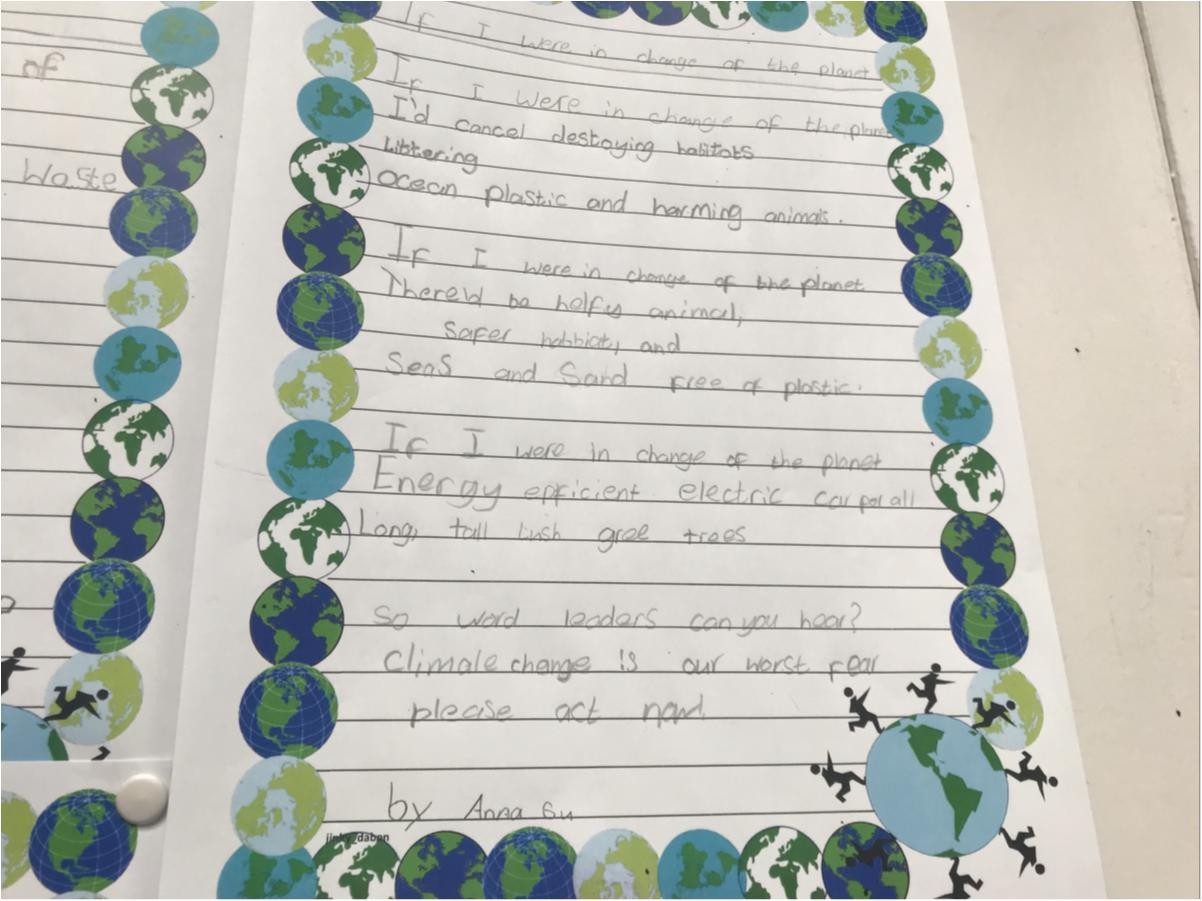 of
Waste
If I were in change of the planet
If I were in change of the planet
I'd cancel destoying habitats
Littering
Ocean plastic and harming animals.
If I were in change of the planet
There'ld be helfy animal,
Safer habbiat, and
Seas and Sand free of plastic.
If I were in change of the planet
Energy efficient electric car for all
Long, tall lush gree trees
So word leaders can you hear?
Climate change is our worst fear
please act now.
by Anna Su
jinky_daban